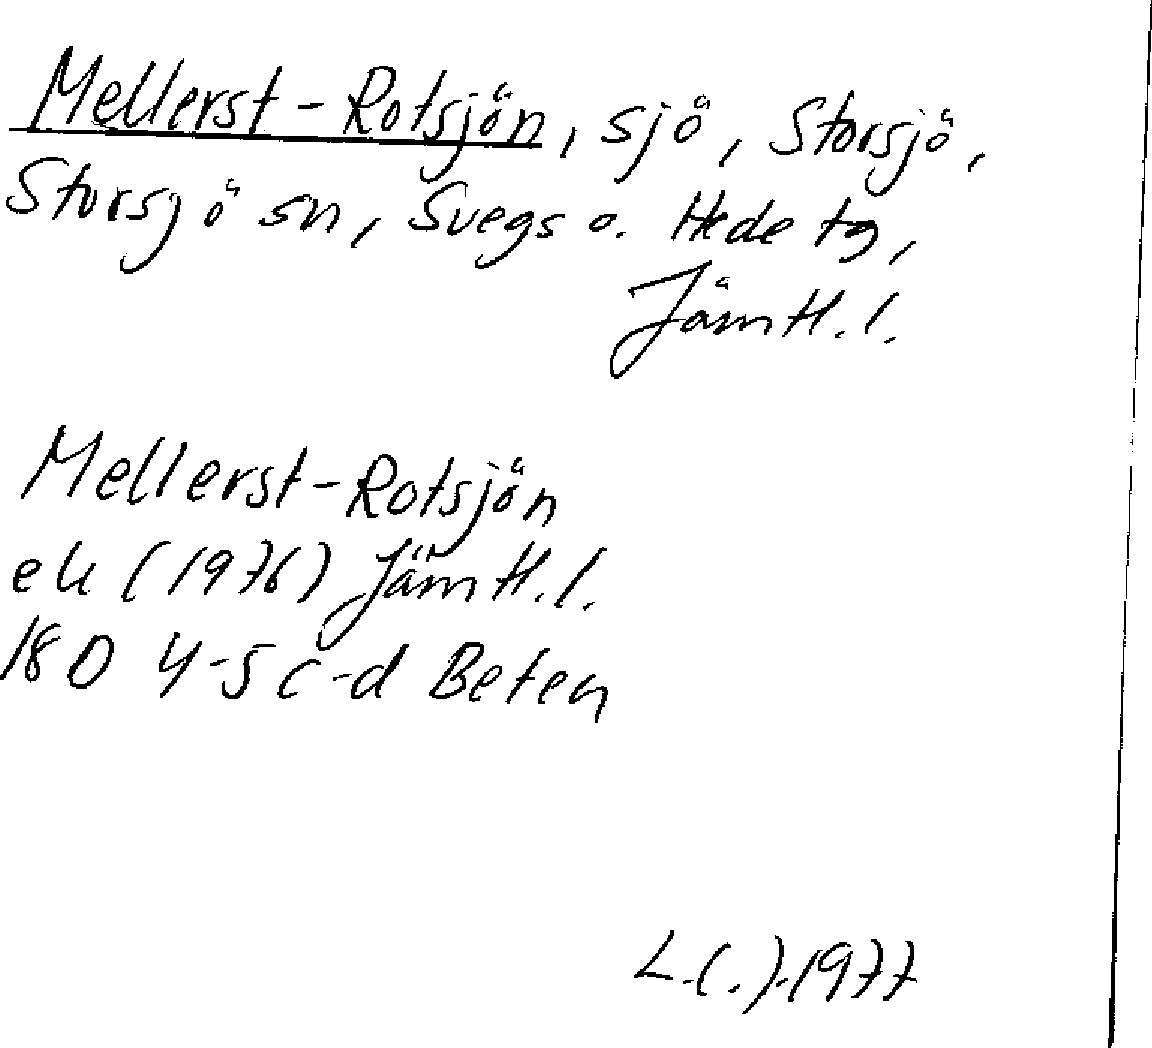 Mellerst-Rotsjön, sjö, Storsjö,
Storsjö sn, Svegs o. Hede tg,
Jämtl. l.
Mellerst-Rotsjön
ek (1976) Jämtl. l.
18D 4-5 c-d Beten
L.(.).1977